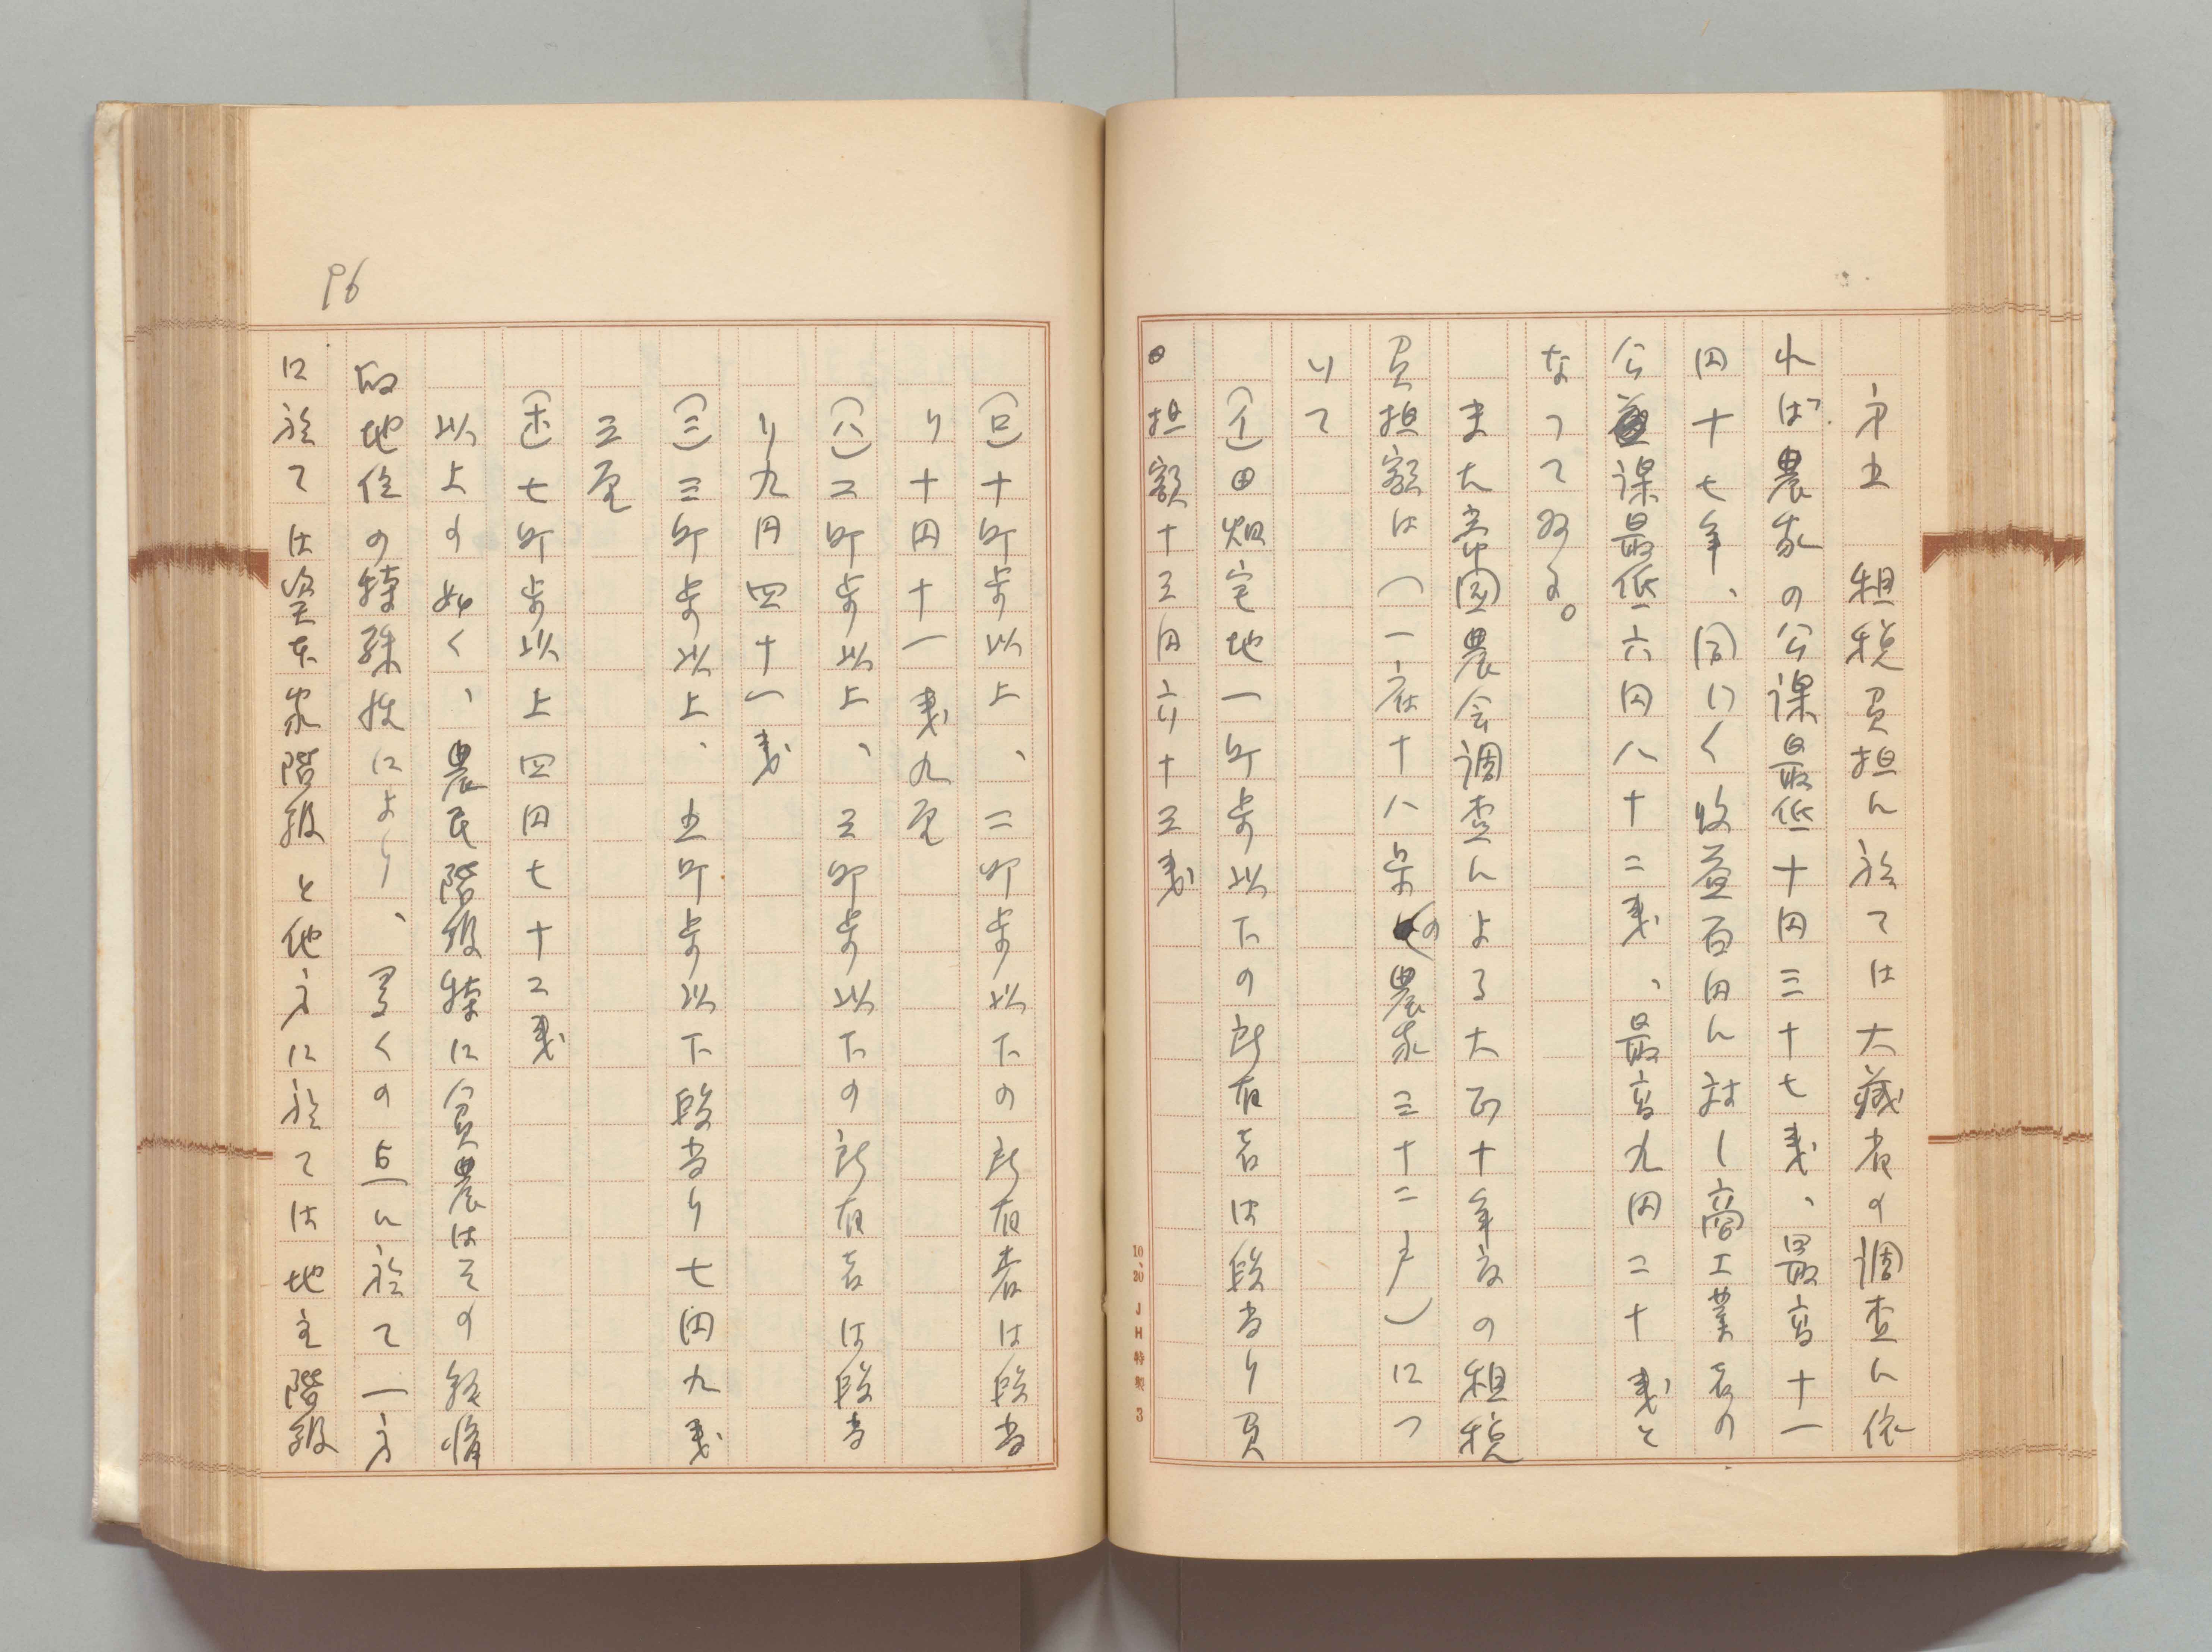 第五　租税負担に於ては大藏省の調査に依
れば、農家の公課最低十円三十七戔、最高十一
円十七戔、同じく收益百円に対し商工業者の
公課最低六円八十二戔、最高九円二十戔と
なつてゐる。
また帝国農会調査による大正十年度の租税
負担額は（一府十八県の農家三十二戸）につ
いて
(イ)田畑宅地一町歩以下の所有者は段当り負
担額十三円六十三戔
(ロ)十町歩以上、二町歩以下の所有者は段当
り十円十一戔九厘
(ハ)二町歩以上、三町歩以下の所有者は段当
り九円四十一戔
(ニ)三町歩以上、五町歩以下段当り七円九戔
三厘
(ホ)七町歩以上四円七十二戔
以上の如く、農民階級特に貧農はその経済
的地位の特殊性により、多くの点に於て一方
に於ては資本家階級と他方に於ては地主階級
96
10、20 JH特製 3